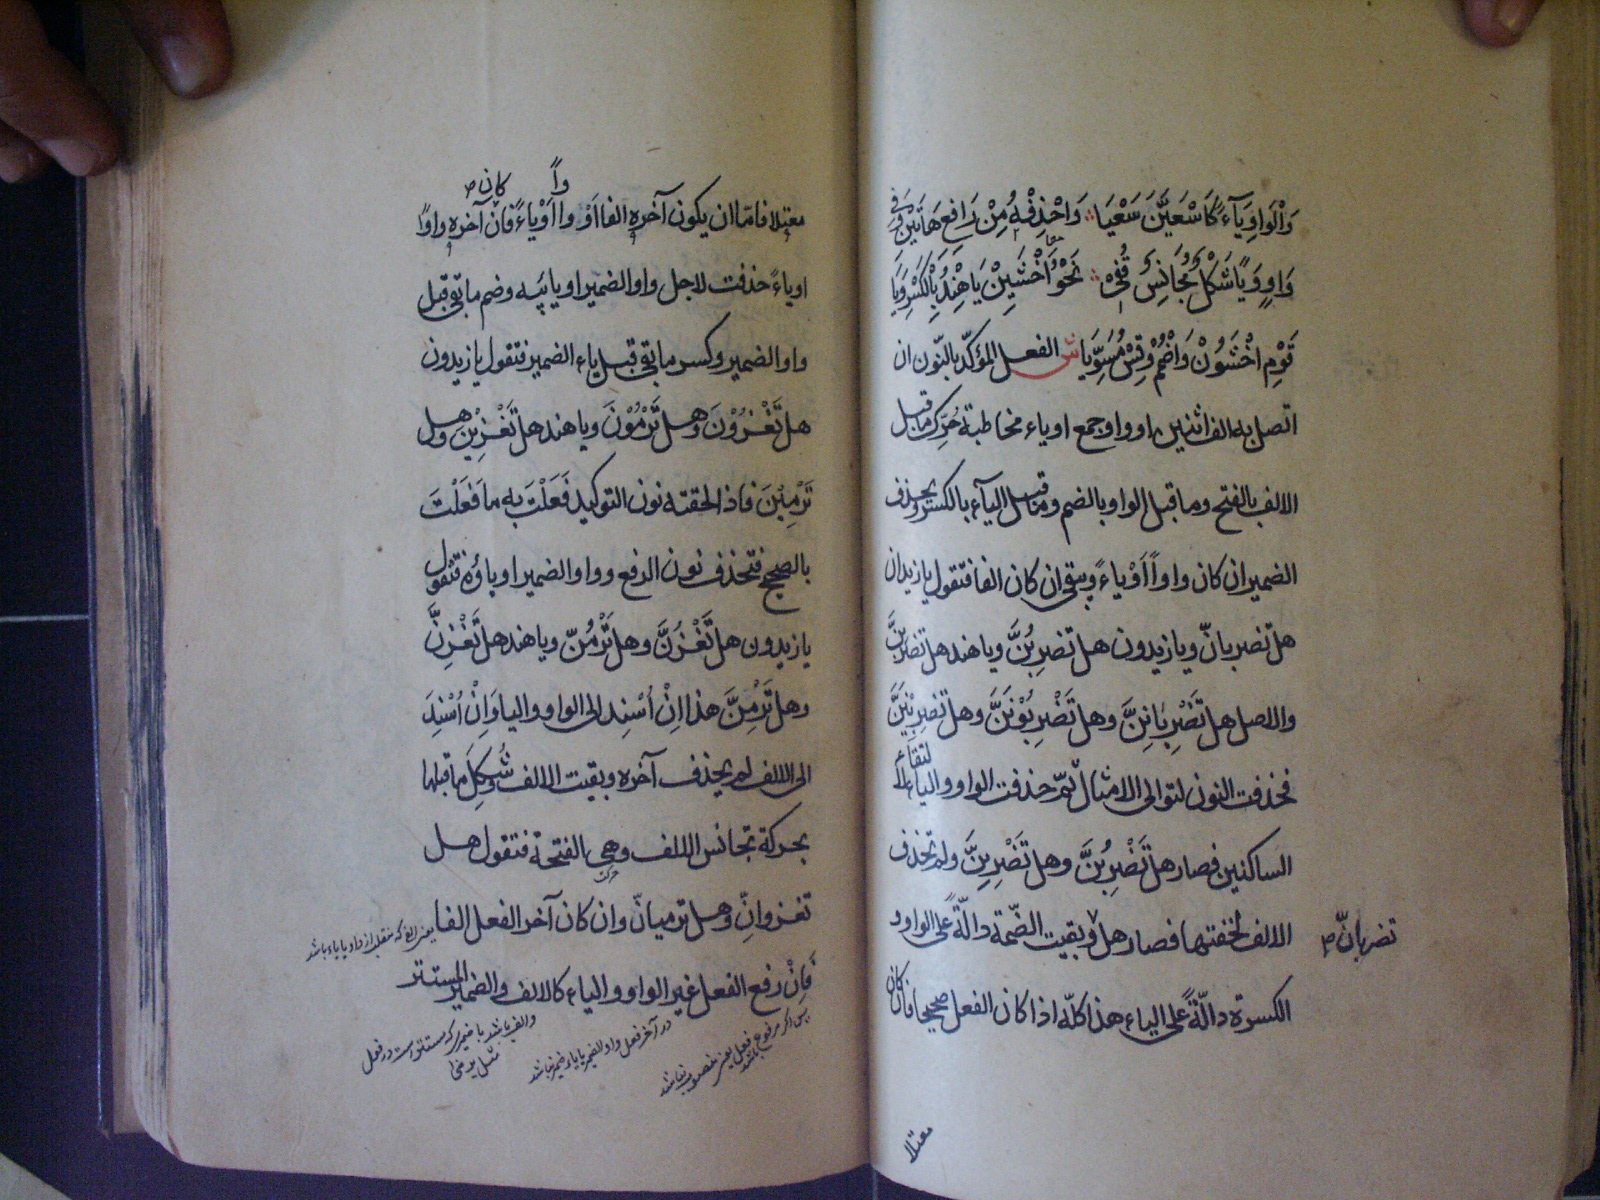 وَالْوَاوِ يَاءً كَاسْعَيَنَّ سَعْيَا ؞ وَاحْذِفْهُ مِنْ رَافِعِ هَاتَيْنِ وَفِي
وَاوٍ وَيَا شَكْلٌ مُجَانِسٌ قُفِيْ ؞ نَحْوُ اخْشَيِنْ يَا هِنْدُ بِالْكَسْرِ وَيَا
قَوْمِ اخْشَوُنْ وَاضْمُمْ وَقِسْ مُسَوِّيَا ش الفعل المؤكّد بالنّون ان
اتصل به الف اثنين او واو جمع او ياء مخاطبة حُرِّك ما قبل
الالف بالفتح وما قبل الواو بالضم وما قبل الياء بالكسر ويحذف
الضمير ان كان واواً اَوْ ياءً ويبقى ان كان الفا فتقول يا زيدان
هل تضربانّ ويا زيدون هل تضرِبُنَّ ويا هند هل تضرِبِنَّ
والاصل هل تَضْرِبَانِنَّ وهل تَضْرِبُوْنَنَّ وهل تضرِبِيْنَنَّ
فحذفت النون لتوالى الامثال ثمّ حذفت الواو والياء لالتقاء
الساكنين فصار هل تَضْرِبُنَّ وهل تَضْرِبِنَّ ولم تحذف
الالف لخفتها فصار هل وبقيت الضّمة دالّةً على الواو و
تضربانّ صح
الكسرة دالّةً على الياء هذا كلّه اذا كان الفعل صحيحا فان كان
معتلا
معتلا فامّا ان يكون آخره الفا اَوْ واواً اَوْ ياءً فان كان آخره واوًا
او ياءً حذفت لاجل واو الضمير او يائه وضم ما بقى قبل
واو الضمير وكسر ما بقى قبل ياء الضمير فتقول يا زيدون
هل تَغْزُوْنَ وهل تَرْمُوْنَ ويا هند هل تَغْزِيْنَ وهل
تَرْمِيْنَ فاذا الحقته نون التوكيد فَعَلْتَ به ما فَعَلْتَ
بالصحيح فتحذف نون الرفع وواو الضمير او ياؤه فتقول
يا زيدون هل تَغْزُنَّ وهل تَرْمُنّ ويا هند هل تَغْزِنَّ
وهل تَرْمِنَّ هذا اِنْ اُسْنِد الى الواو والياء وَاِنْ اُسْنِدَ
الى الالف لم يحذف آخره وبقيت الالف وشُكِلَ ما قبلها
بحركة تجانس الالف وهى الفتحة فتقول هل
تغزوانِّ وهل ترميانّ وان كان آخر الفعل الفا
يعنى الف كه منقلب از واو يا ياء باشد
فَاِنْ رفع الفعل غير الواو والياء كالالف والضمير المستتر
پس اگر مرفوع باشد فعل يعنى منصوب نباشد
در آخر فعل واو الضمير يا ياء ضمير نباشد
والف باشد يا ضميرى كه مستتر است در فعل